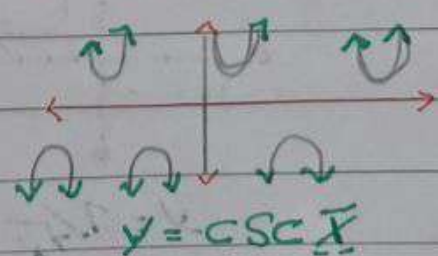 y = CSC X